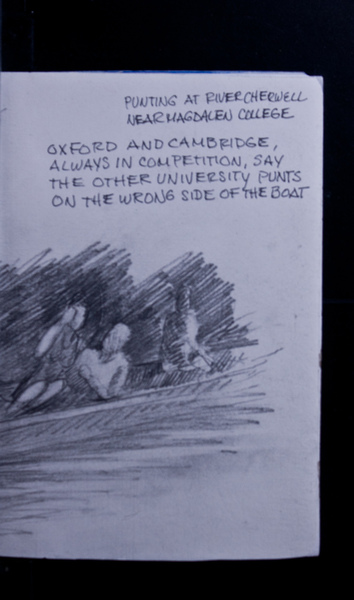 PUNTING AT RIVER CHERWELL
NEAR MAGDALEN COLLEGE
OXFORD AND CAMBRIDGE,
ALWAYS IN COMPETITION, SAY
THE OTHER UNIVERSITY PUNTS
ON THE WRONG SIDE OF THE BOAT